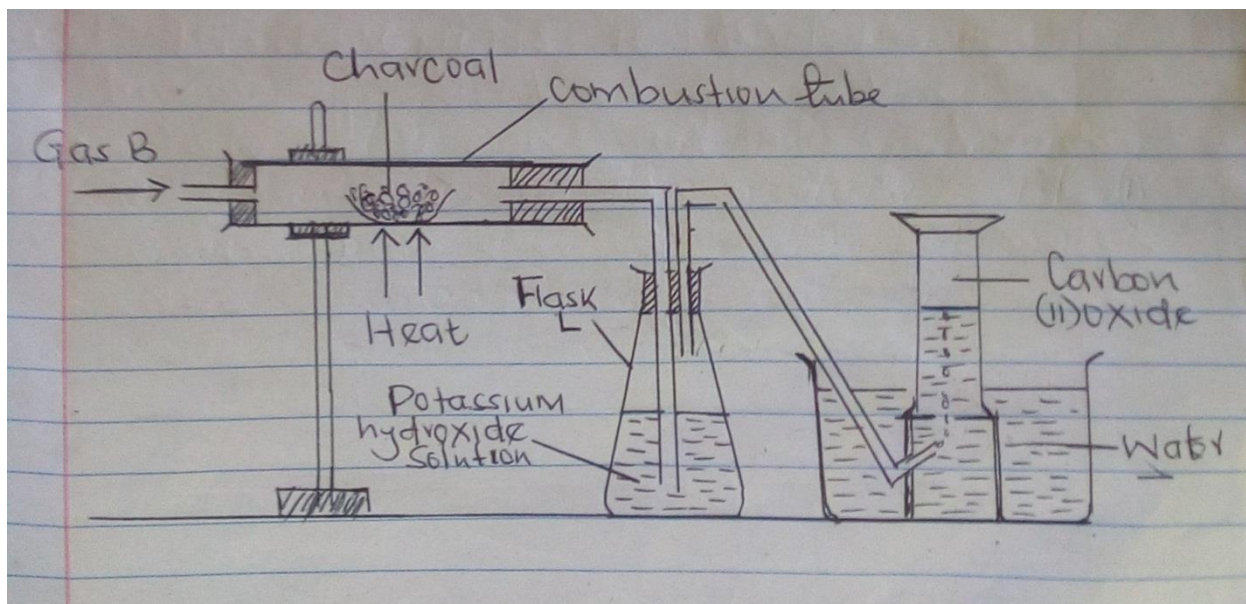 Charcoal
Combustion tube
Gas B
Heat
Flask
L
Potassium
hydroxide
solution
Carbon
(II)oxide
Water